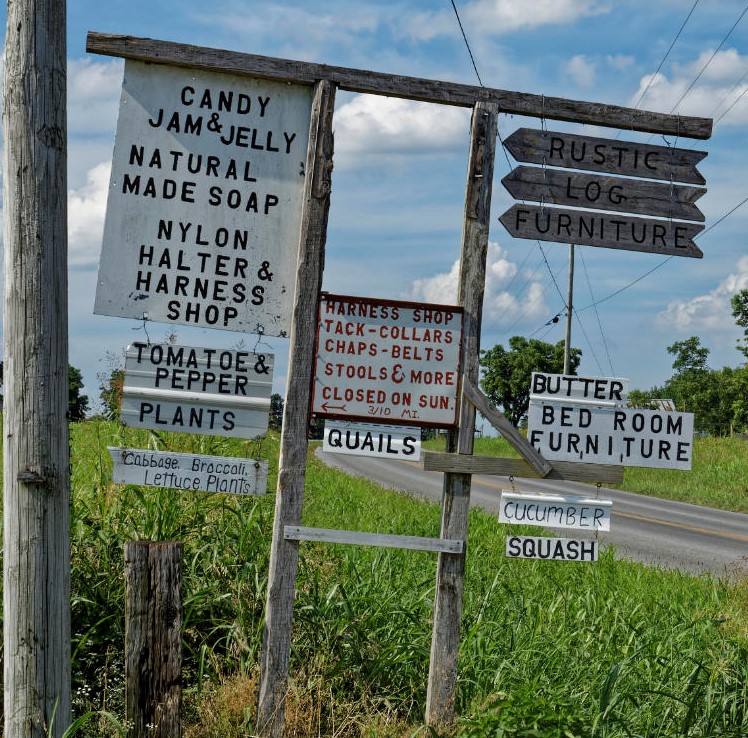 CANDY
JAM & JELLY
NATURAL
MADE SOAP
NYLON
HALTER &
HARNESS
SHOP
TOMATOE &
PEPPER
PLANTS
Cabbage, Broccoli,
Lettuce, Plants
HARNESS SHOP
TACK-COLLARS
CHAPS-BELTS
STOOLS & MORE
CLOSED ON SUN.
← 3/10 MI.
QUAILS
RUSTIC
LOG
FURNITURE
BUTTER
BED ROOM
FURNITURE
CUCUMBER
SQUASH